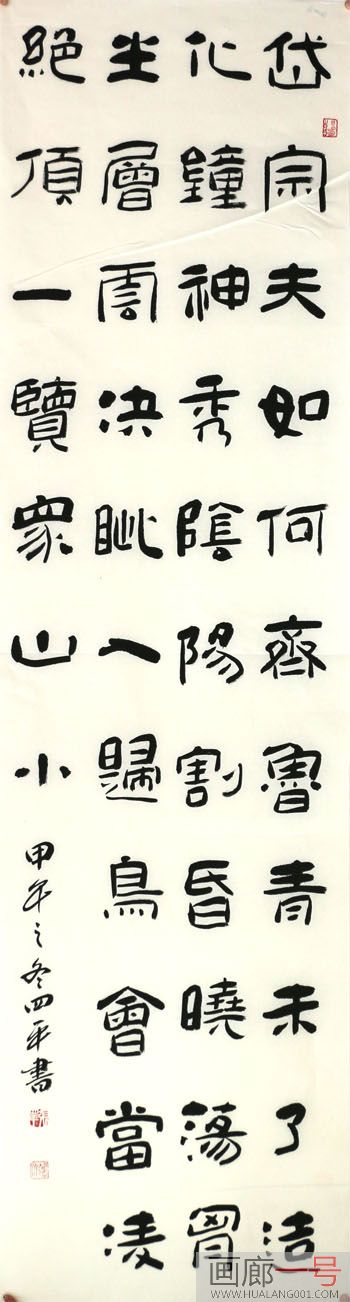 岱宗夫如何齊魯青未了造
化鐘神秀陰陽割昏曉蕩胷
生層雲決眦入歸鳥會當凌
絕頂一覽眾山小
甲午之冬四平書
画廊一号
WWW.HUALANG001.COM